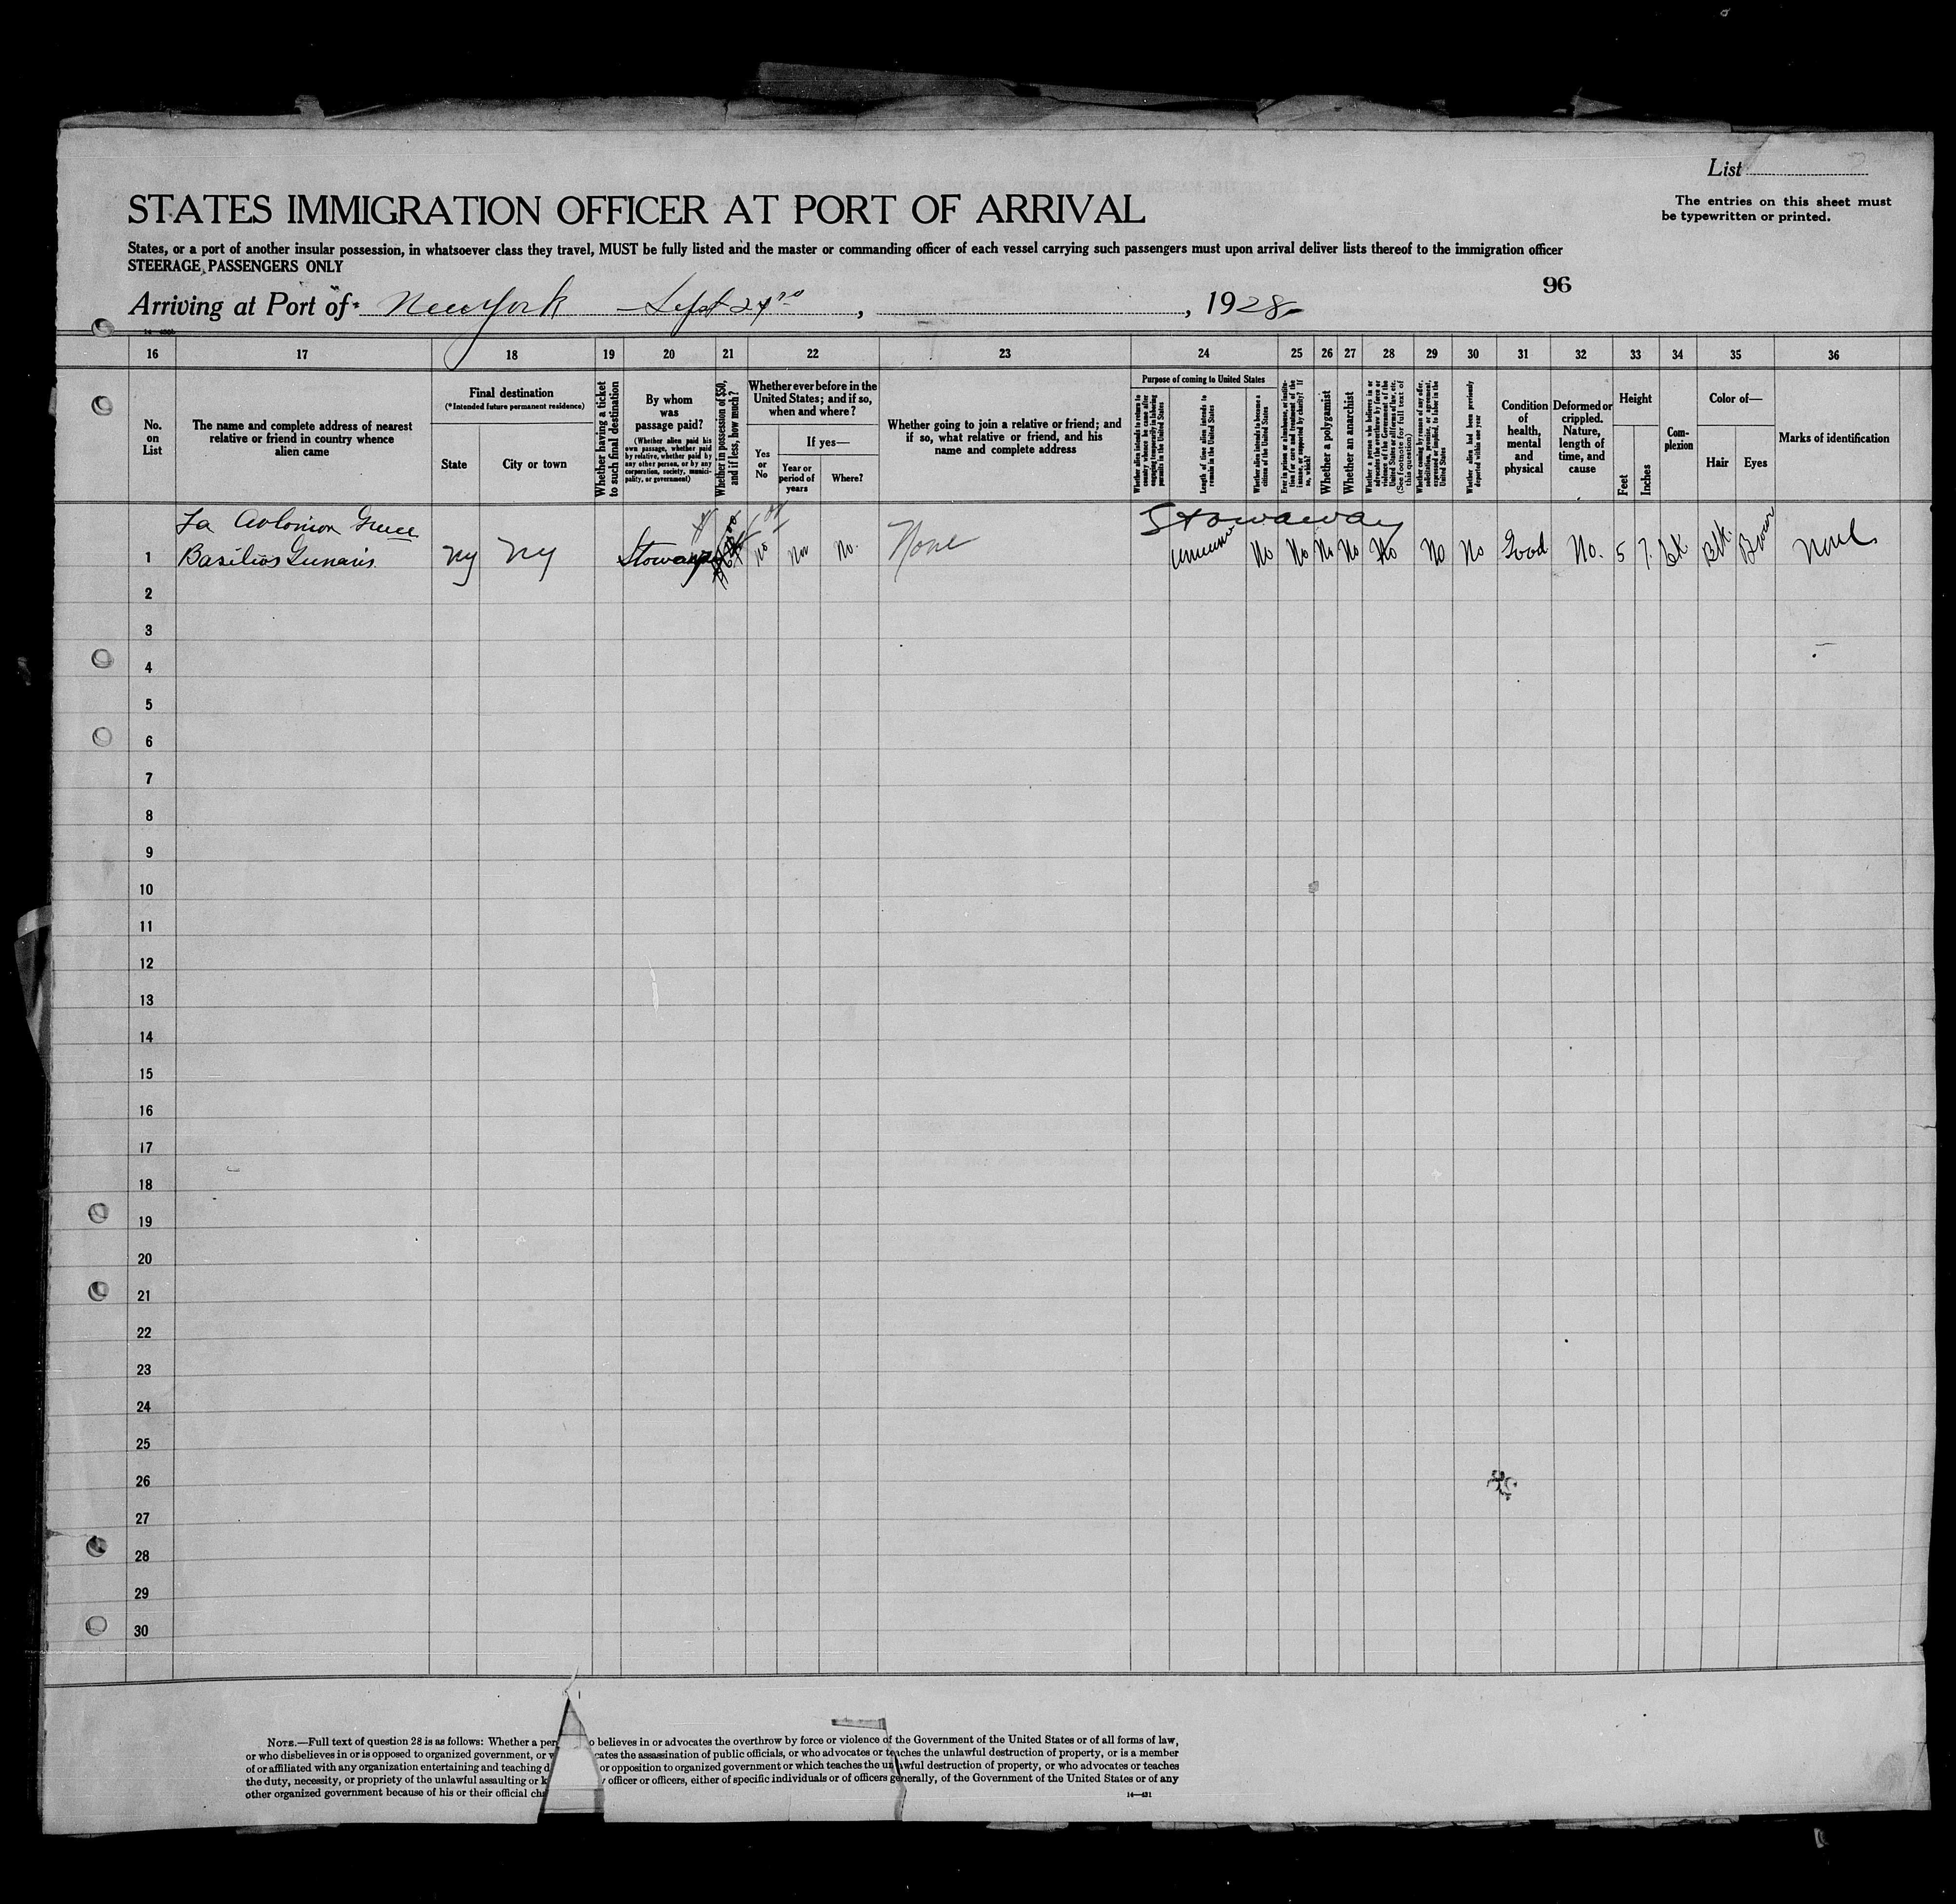 List
The entries on this sheet must
be typewritten or printed.
STATES IMMIGRATION OFFICER AT PORT OF ARRIVAL
States, or a port of another insular possession, in whatsoever class they travel, MUST be fully listed and the master or commanding officer of each vessel carrying such passengers must upon arrival deliver lists thereof to the immigration officer
STEERAGE PASSENGERS ONLY
96
Arriving at Port of New York Sept , , 1928
16 17 18 19 20 21 22 23 24 25 26 27 28 29 30 31 32 33 34 35 36
No.
on
List
The name and complete address of nearest
relative or friend in country whence
alien came
Final destination
(*Intended future permanent residence)
State
City or town
Whether having a ticket
to such final destination
By whom
was
passage paid?
(Whether alien paid his
own passage, whether paid
by relative, whether paid by
any other person, or by any
corporation, society, munici-
pality, or government)
Whether in possession of $50,
and if less, how much?
Whether ever before in the
United States; and if so,
when and where?
Yes
or
No
If yes—
Year or
period of
years
Where?
Whether going to join a relative or friend; and
if so, what relative or friend, and his
name and complete address
Purpose of coming to United States
Whether alien intends to return to
country whence he came after
engaging temporarily in laboring
pursuits in the United States
Length of time alien intends to
remain in the United States
Whether alien intends to become a
citizen of the United States
Ever in prison or almshouse, or institu-
tion for care and treatment of the
insane, or supported by charity? If
so, which?
Whether a polygamist
Whether an anarchist
Whether a person who believes in or
advocates the overthrow by force or
violence of the Government of the
United States or all forms of law, etc.
(See footnote for full text of
this question)
Whether coming by reason of any offer,
solicitation, promise, or agreement,
expressed or implied, to labor in the
United States
Whether alien had been previously
deported within one year
Condition
of
health,
mental
and
physical
Deformed or
crippled.
Nature,
length of
time, and
cause
Height
Feet
Inches
Com-
plexion
Color of—
Hair
Eyes
Marks of identification
Greece Stowaway
1 Basilios Gunaris NY NY Stowaway No No None No No No No No No No Good No. 5 7 Blk Brown None
2
3
4
5
6
7
8
9
10
11
12
13
14
15
16
17
18
19
20
21
22
23
24
25
26
27
28
29
30
NOTE.—Full text of question 28 is as follows: Whether a believes in or advocates the overthrow by force or violence of the Government of the United States or of all forms of law,
or who disbelieves in or is opposed to organized government, or the assassination of public officials, or who advocates or teaches the unlawful destruction of property, or is a member
of or affiliated with any organization entertaining and teaching or opposition to organized government or which teaches the unlawful destruction of property, or who advocates or teaches
the duty, necessity, or propriety of the unlawful assaulting or officer or officers, either of specific individuals or of officers generally, of the Government of the United States or of any
other organized government because of his or their official
14—431